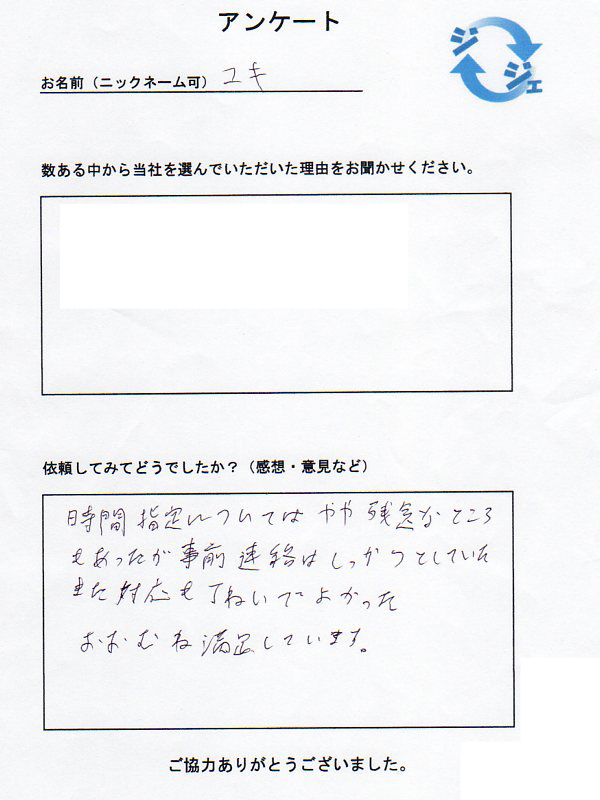 アンケート
ジジェ
お名前（ニックネーム可） ユキ
数ある中から当社を選んでいただいた理由をお聞かせください。
依頼してみてどうでしたか？（感想・意見など）
時間指定についてはやや残念なところ
もあったが事前連絡はしっかりとしていた
また対応も丁ねいでよかった
おおむね満足しています。
ご協力ありがとうございました。